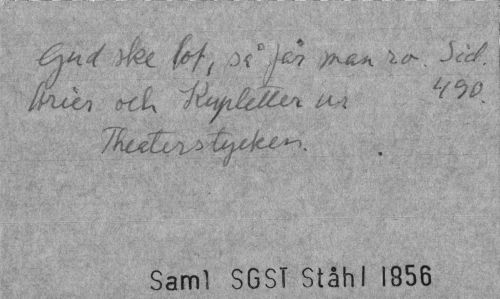 Gud ske lof, så får man ro. Sid. 490.
Arier och Kupletter ur
Theaterstycken.
Saml SGST Ståhl 1856